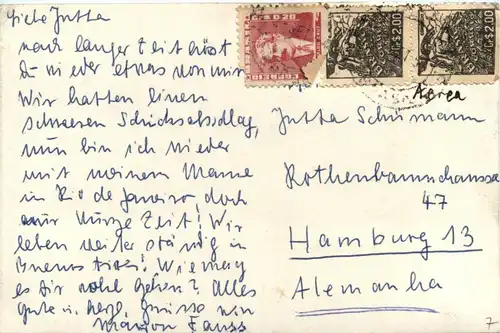 Liebe Jutta
nach langer Zeit hörst
Du wieder etwas von mir
Wir hatten einen
schweren Schicksalsschlag,
nun bin ich wieder
mit meinem Manne
in Rio de Janeiro, doch
nur kurze Zeit! Wir
leben weiter ständig in
Buenos Aires! Wie mag
es Dir wohl gehen? Alles
gute u. herzl. Grüsse von
Marion
CR$ 0,20
CR$2,00
CR$2,00
Aerea
Jutta Schümann
Rothenbaumchaussee
47
Hamburg 13
Alemanha
7